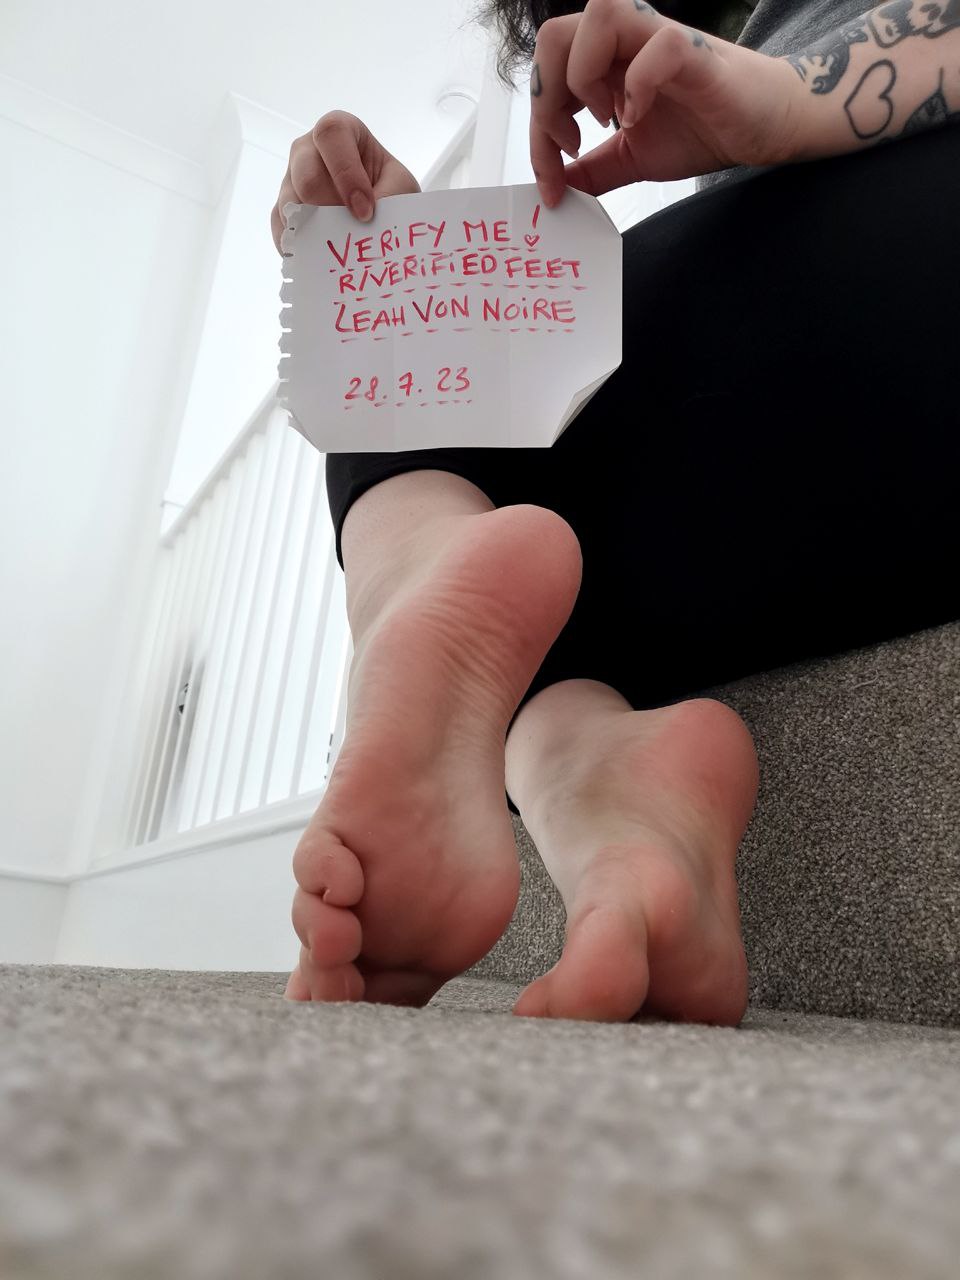 VERiFY ME!
R/VERiFiED FEET
LEAH VON NOiRE
28. 7. 23